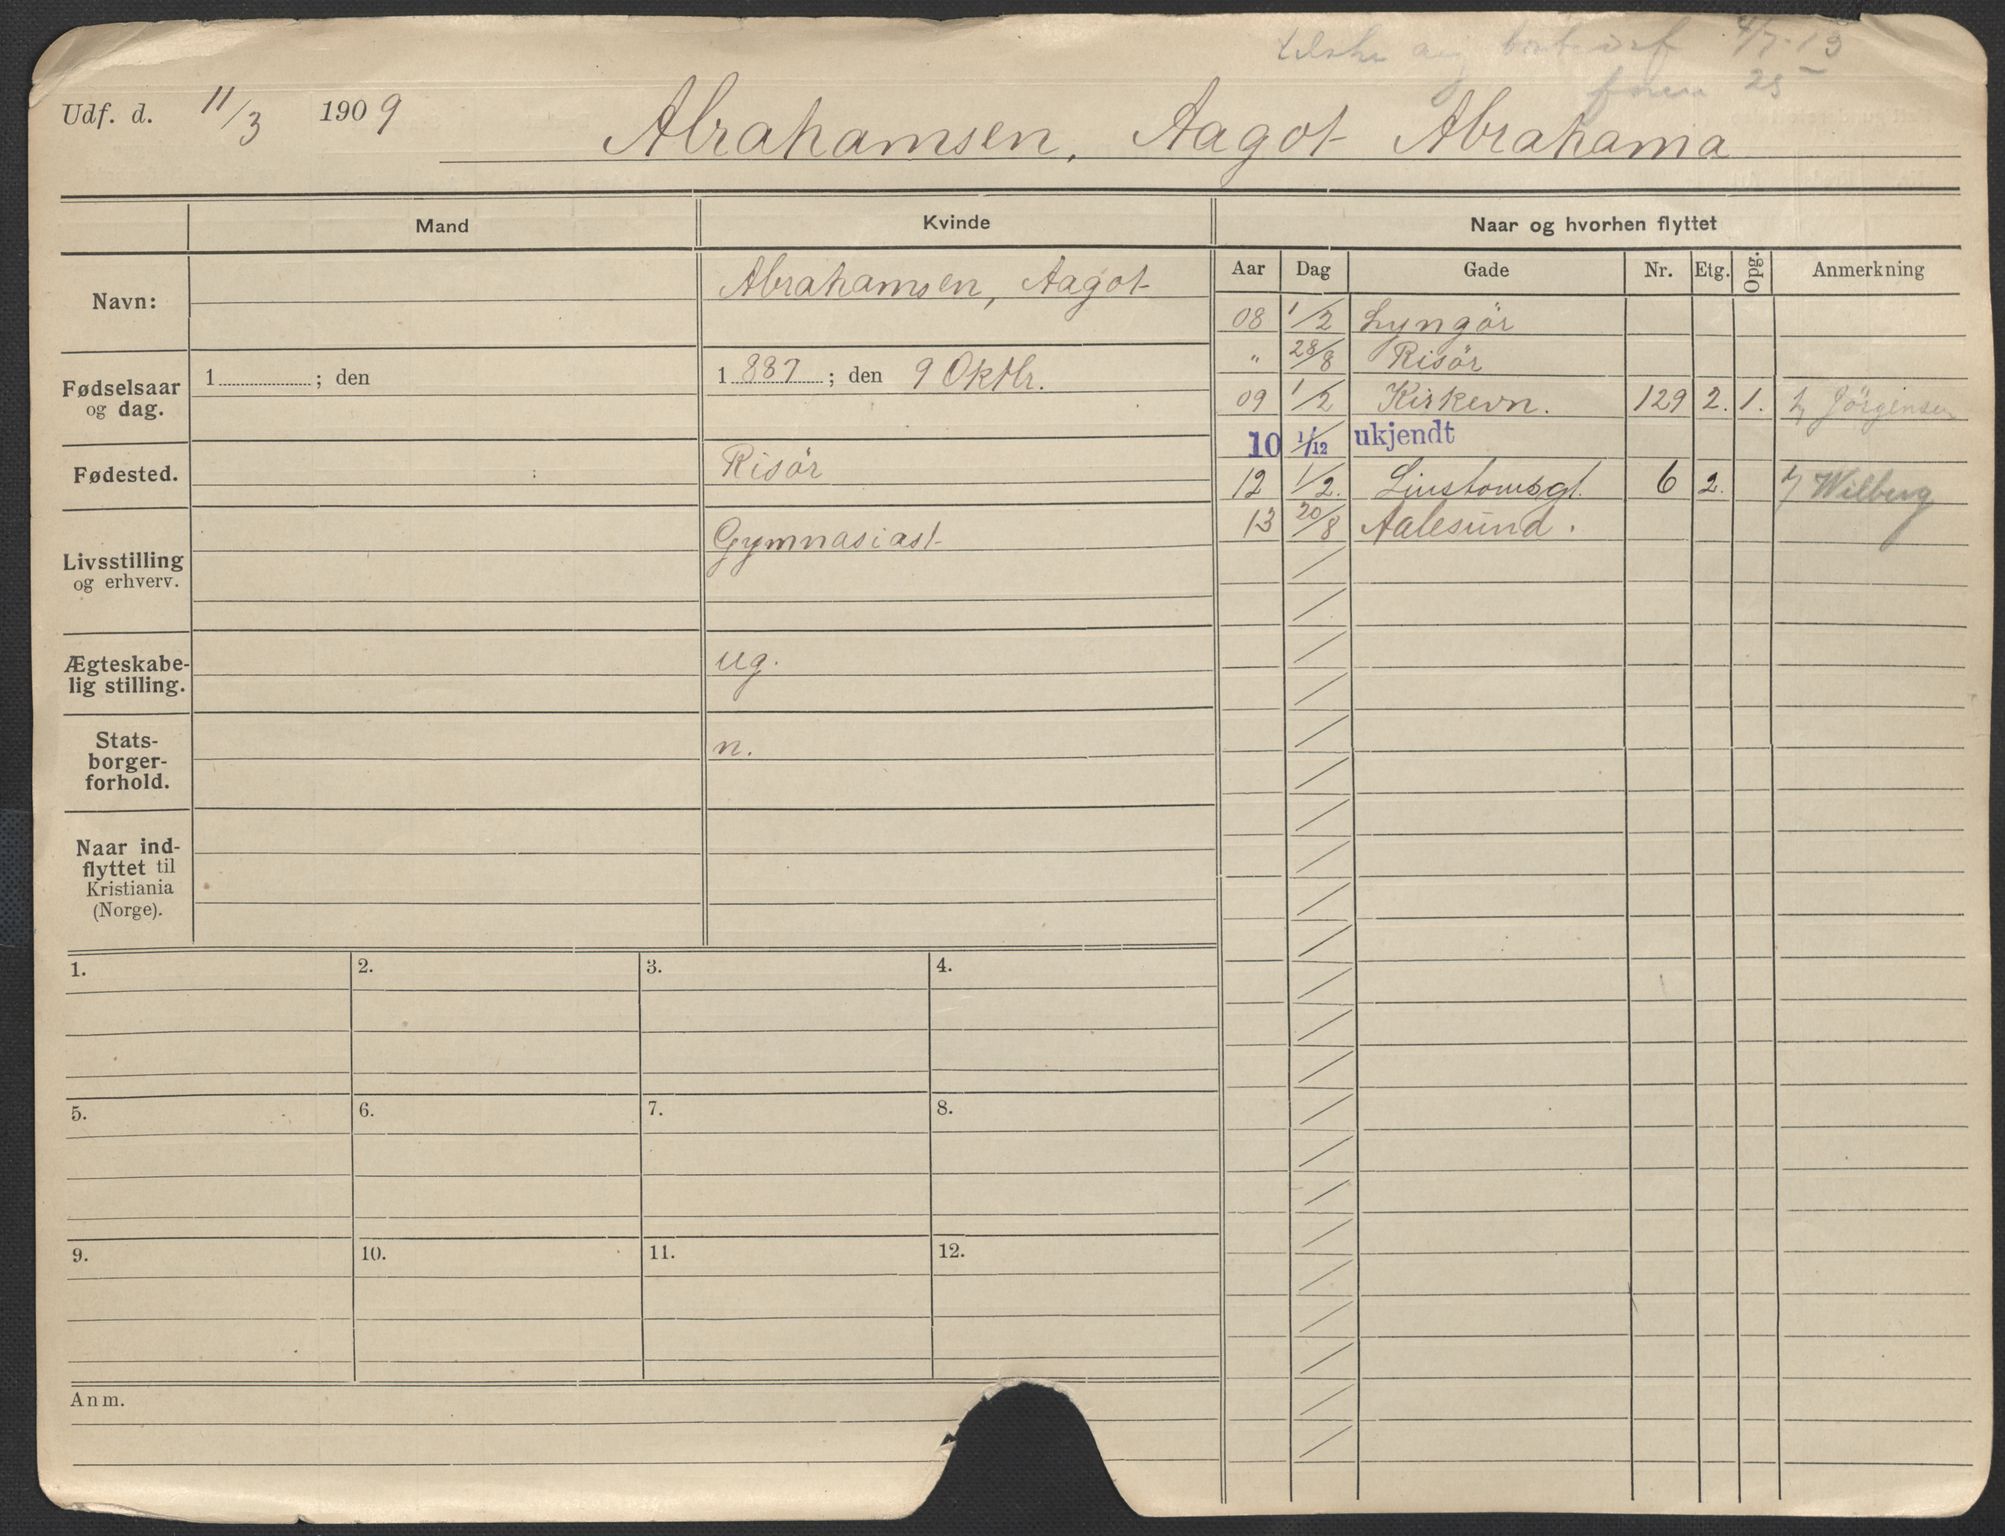 Udf. d. 11/3 1909
Abrahamsen, Aagot Abrahama
4/7-13
25
Mand
Kvinde
Naar og hvorhen flyttet
Navn:
Abrahamsen, Aagot
Fødselsaar og dag.
1 ; den
1 887 ; den 9 Oktbr.
Fødested.
Risör
Livsstilling og erhverv.
Gymnasiast
Ægteskabe-
lig stilling.
ug.
Stats-
borger-
forhold.
n.
Naar ind-
flyttet til
Kristiania
(Norge).
Aar Dag Gade Nr. Etg. Opg. Anmerkning
08 1/2 Lyngör
" 28/8 Risör
09 1/2 Kirkevn. 129 2. 1. h/ Jörgensen
10 1/12 ukjendt
12 1/2. Linstowsgt. 6 2. h/ Wilberg
13 20/8 Aalesund.
1. 2. 3. 4.
5. 6. 7. 8.
9. 10. 11. 12.
Anm.